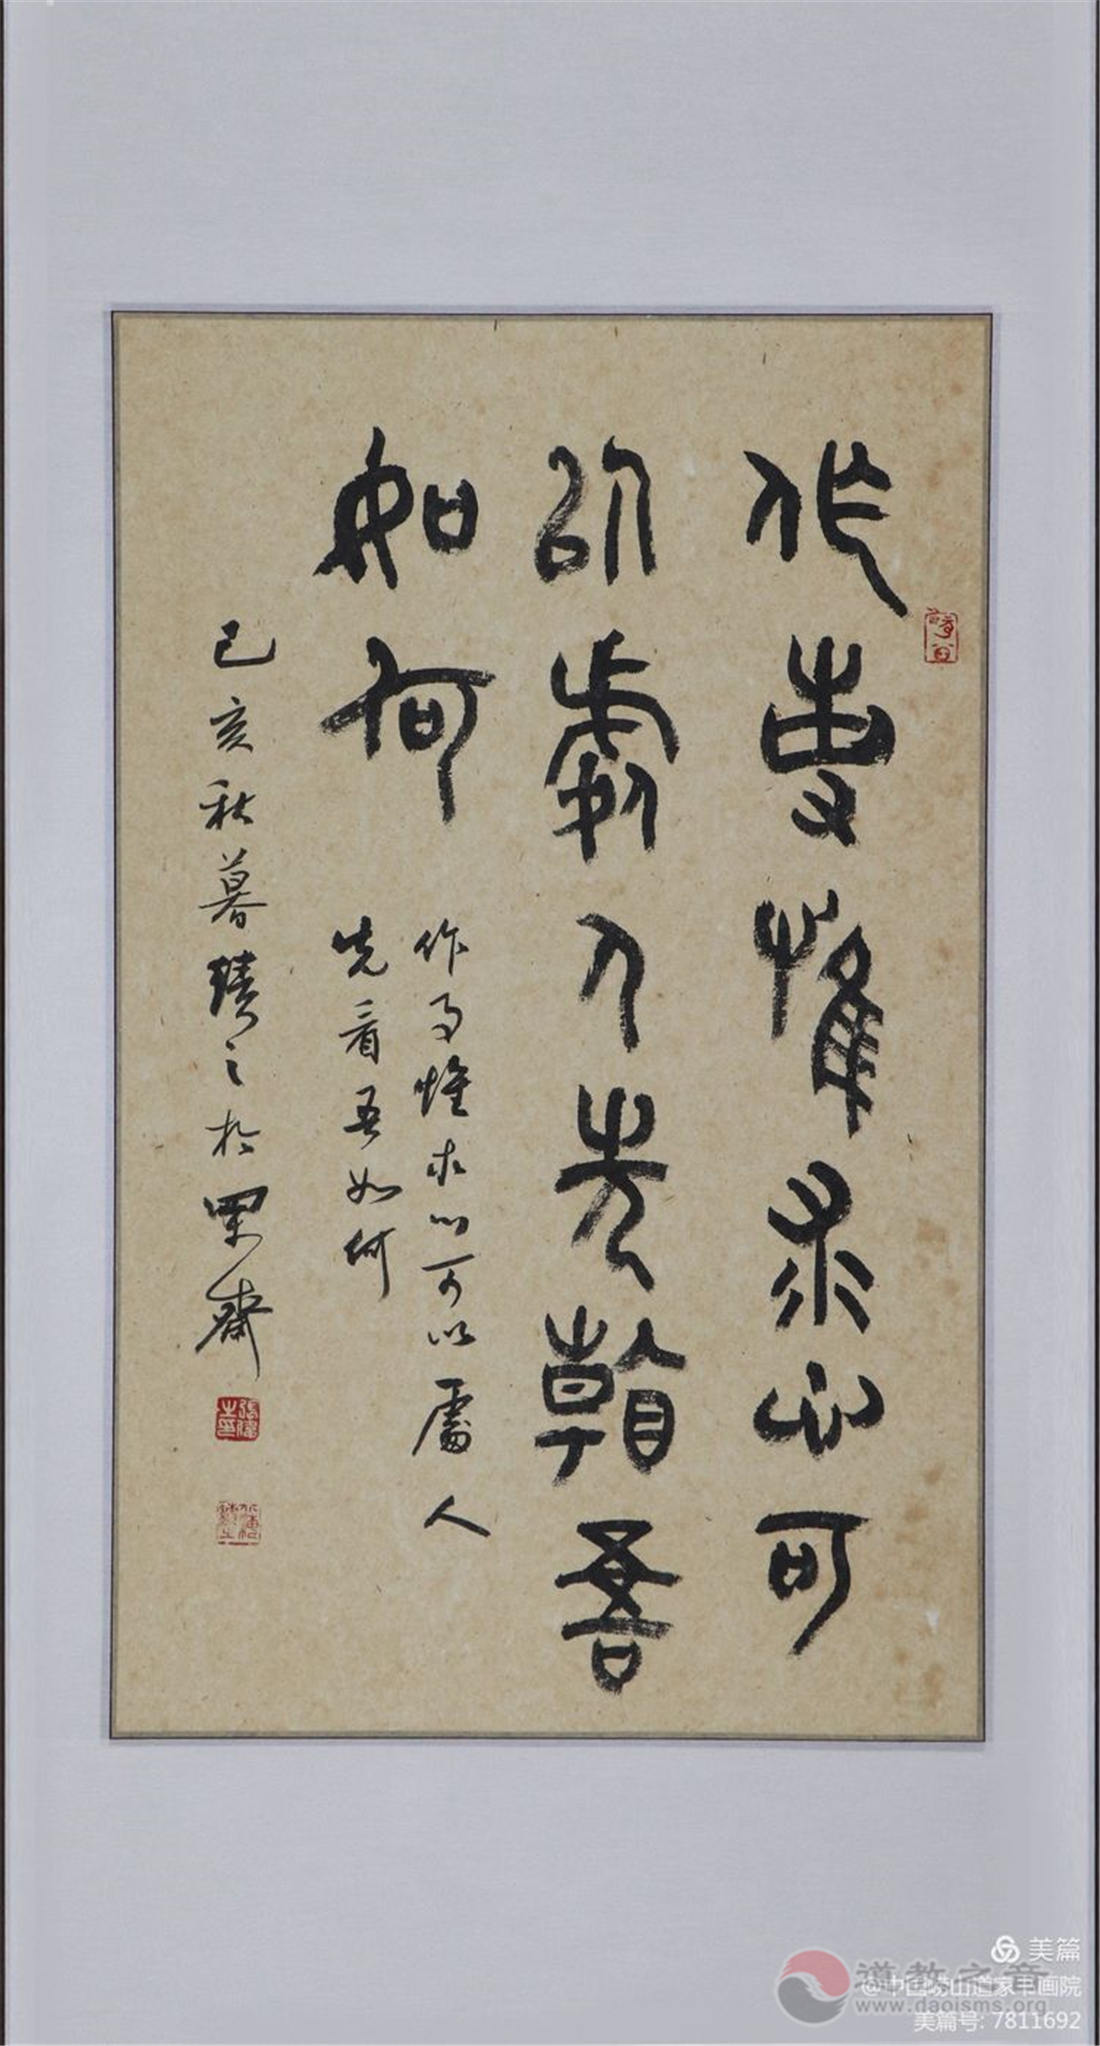 作事惟求心可
以處人先看吾
如何
作事惟求心可以處人
先看吾如何
己亥秋暮積之於果齋
美篇
道教之音
@中国崂山道家书画院
www.daoisms.org
美篇号: 7811692